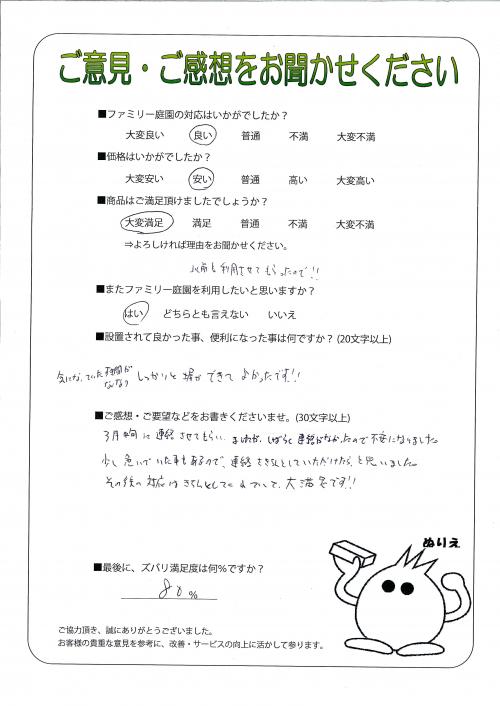 ご意見・ご感想をお聞かせください
■ファミリー庭園の対応はいかがでしたか？
大変良い 良い 普通 不満 大変不満
■価格はいかがでしたか？
大変安い 安い 普通 高い 大変高い
■商品はご満足頂けましたでしょうか？
大変満足 満足 普通 不満 大変不満
⇒よろしければ理由をお聞かせください。
以前も利用させてもらったので!!
■またファミリー庭園を利用したいと思いますか？
はい どちらとも言えない いいえ
■設置されて良かった事、便利になった事は何ですか？(20文字以上)
気になっていた隙間がなくなり しっかりと塀ができてよかったです!!
■ご感想・ご要望などをお書きくださいませ。(30文字以上)
3月に連絡させてもらい、ましたが、しばらく連絡がなかったので不安になりました
少し急いでいた事もあるので、連絡をきちんとしていただけたら、と思いました。
その後の対応はきちんとして 大満足です!!
ぬりえ
■最後に、ズバリ満足度は何％ですか？
80 %
ご協力頂き、誠にありがとうございました。
お客様の貴重な意見を参考に、改善・サービスの向上に活かして参ります。